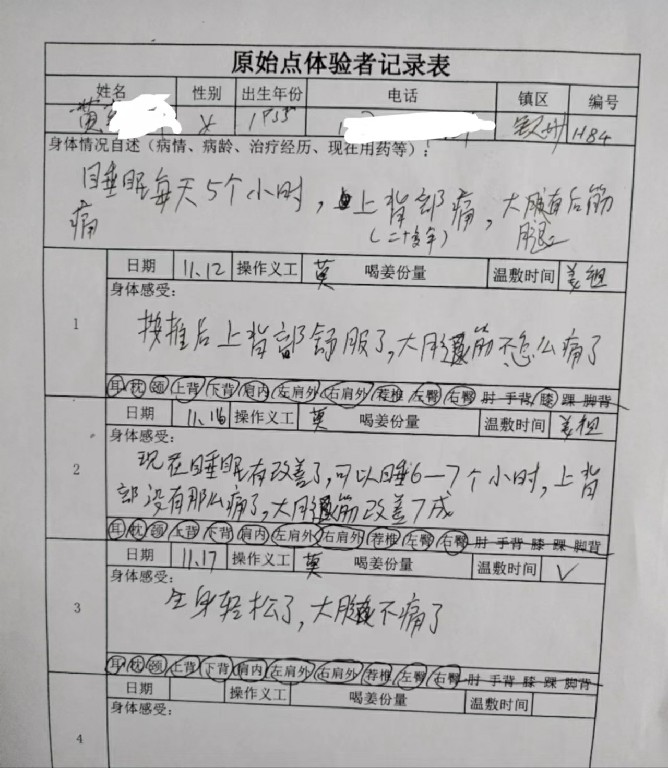 原始点体验者记录表
姓名 性别 出生年份 电话 镇区 编号
黄 女 1955 H84
身体情况自述（病情、病龄、治疗经历、现在用药等）：
睡眠每天5个小时，上背部痛，大腿有后筋
痛 （二十多年）
日期 11.12 操作义工 莫 喝姜份量 温敷时间 姜粗
身体感受：
1
按推后上背部舒服了，大腿筋不怎么痛了
耳 枕 颈 上背 下背 肩内 左肩外 右肩外 荐椎 左臀 右臀 肘 手背 膝 踝 脚背
日期 11.16 操作义工 莫 喝姜份量 温敷时间 姜粗
身体感受：
2
现在睡眠有改善了，可以睡6—7个小时，上背
部没有那么痛了，大腿筋改善7成
耳 枕 颈 上背 下背 肩内 左肩外 右肩外 荐椎 左臀 右臀 肘 手背 膝 踝 脚背
日期 11.17 操作义工 莫 喝姜份量 温敷时间 √
身体感受：
3
全身轻松了，大腿不痛了
耳 枕 颈 上背 下背 肩内 左肩外 右肩外 荐椎 左臀 右臀 肘 手背 膝 踝 脚背
日期 操作义工 喝姜份量 温敷时间
身体感受：
4